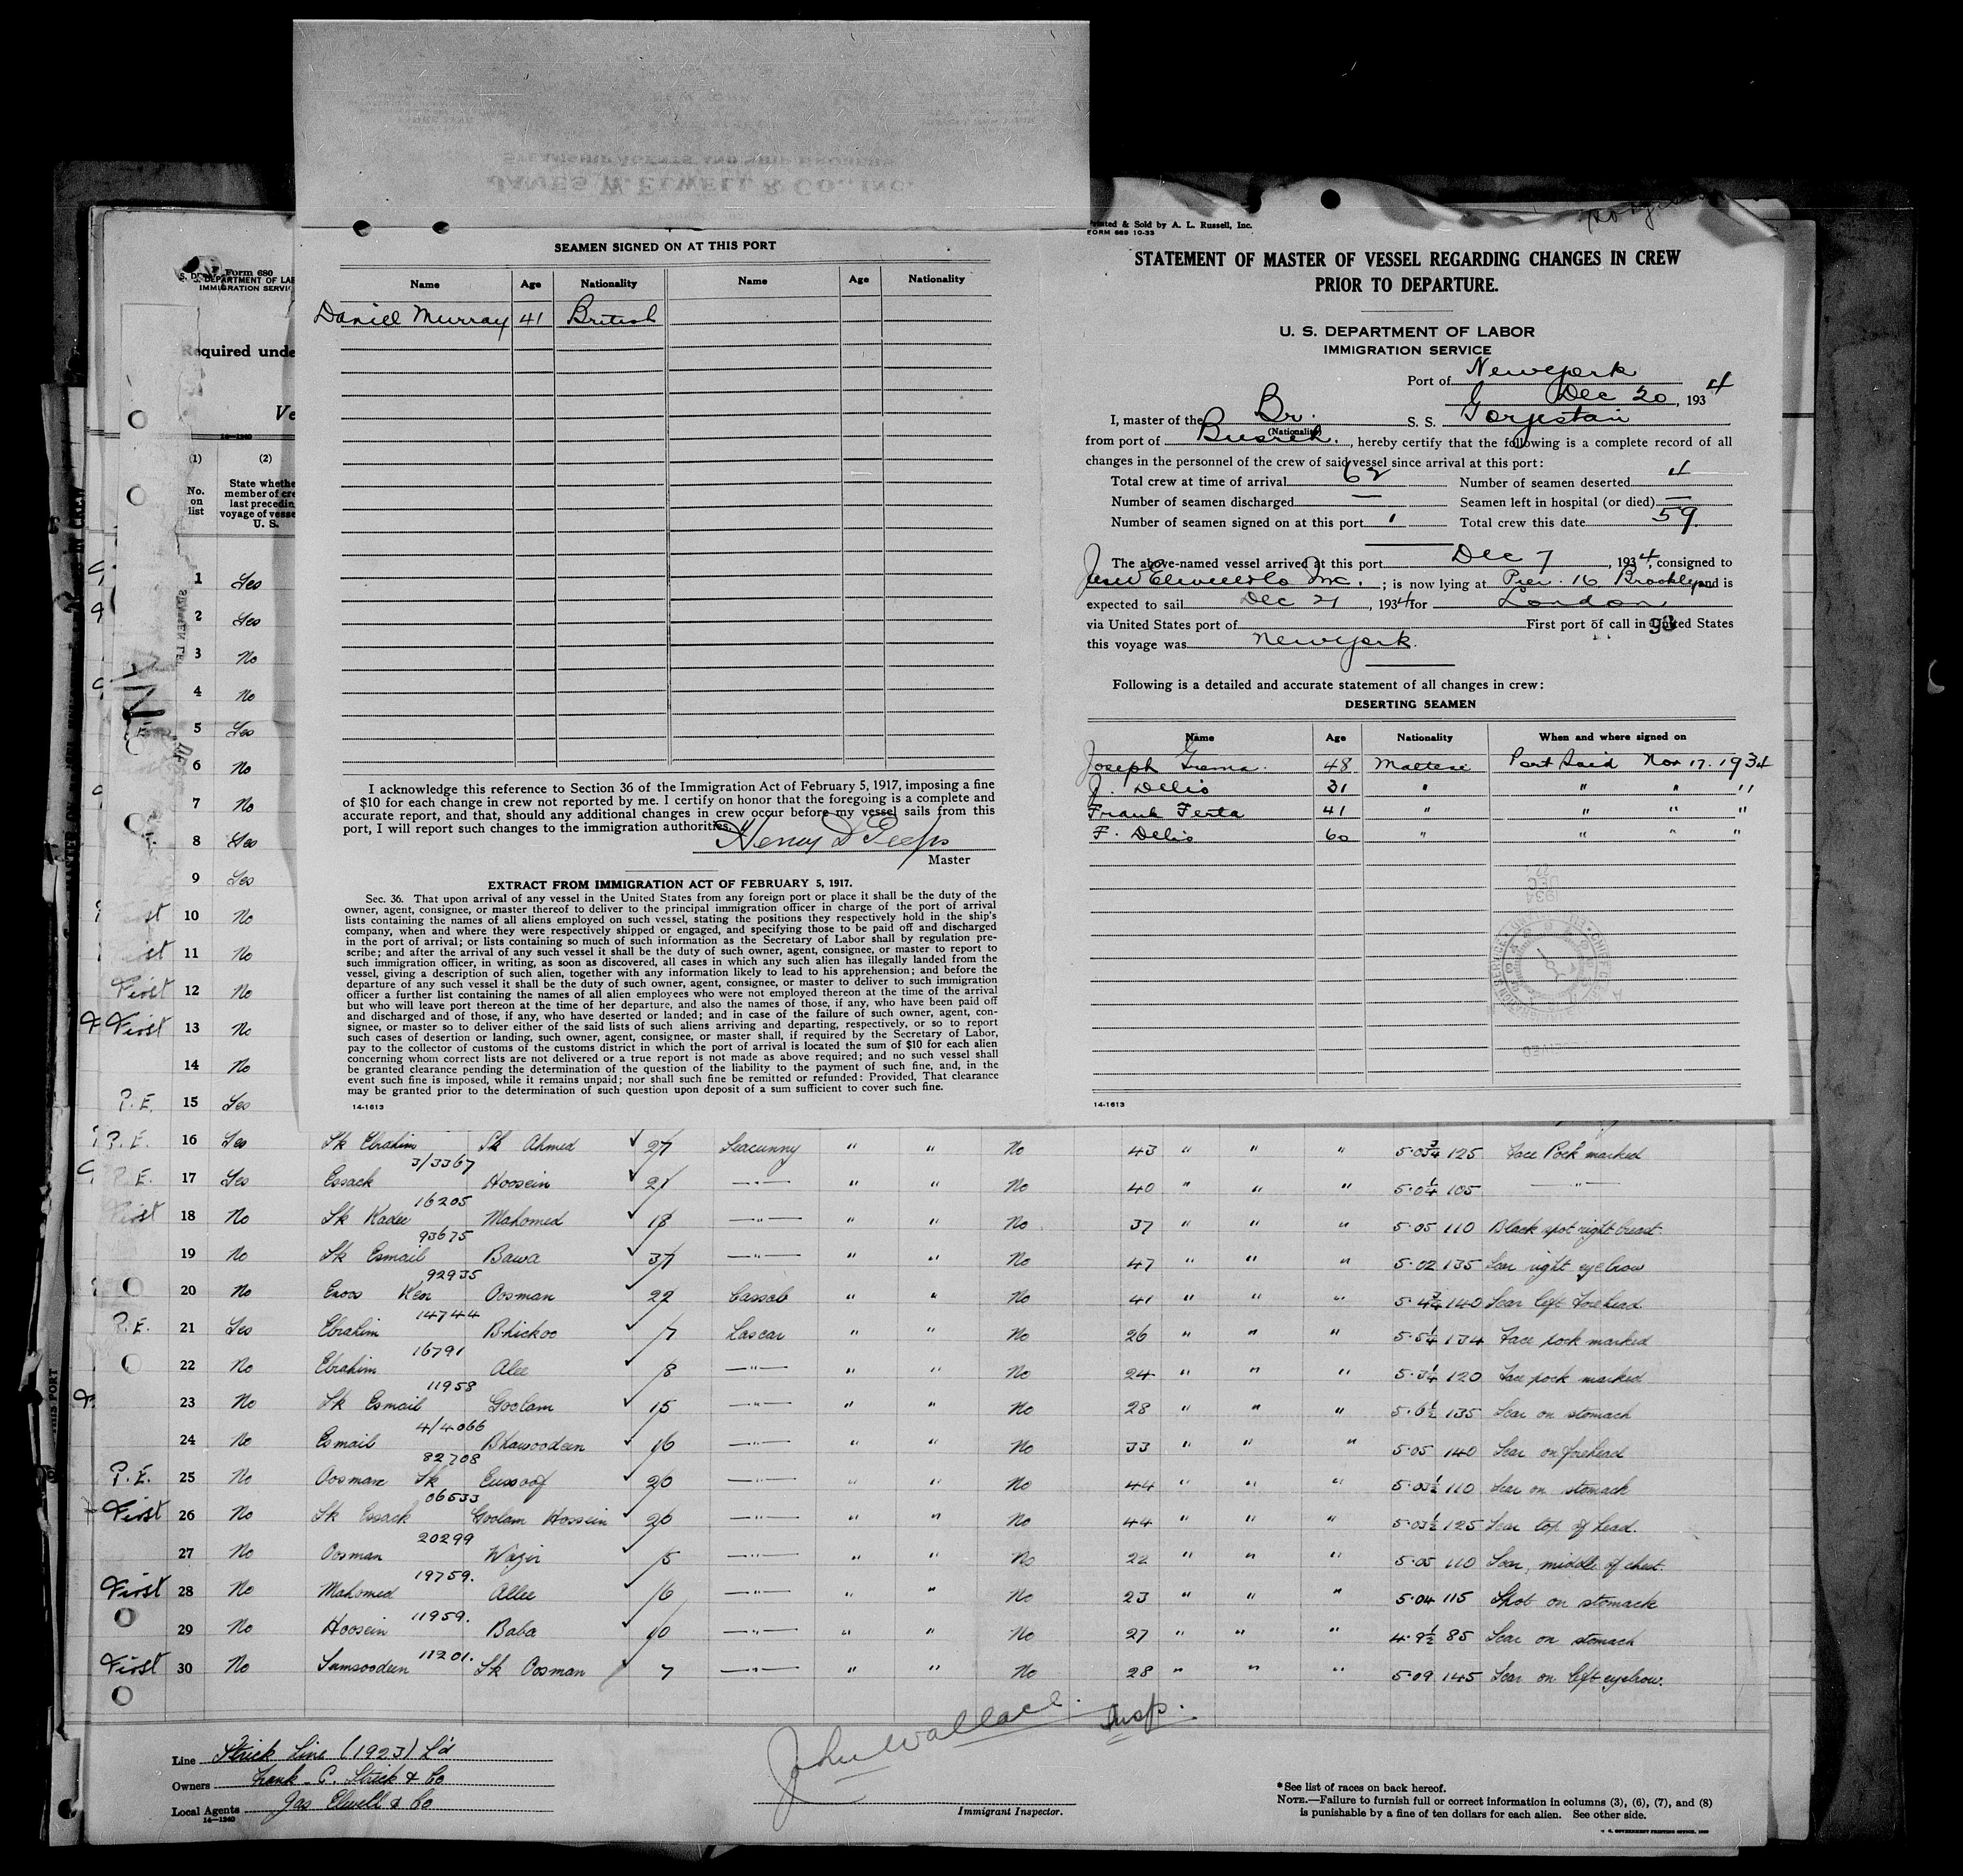 JAMES W. ELWELL & CO., INC.
STEAMSHIP AGENTS AND SHIP BROKERS
SEAMEN SIGNED ON AT THIS PORT
Name Age Nationality Name Age Nationality
Daniel Murray 41 British
I acknowledge this reference to Section 36 of the Immigration Act of February 5, 1917, imposing a fine
of $10 for each change in crew not reported by me. I certify on honor that the foregoing is a complete and
accurate report, and that, should any additional changes in crew occur before my vessel sails from this
port, I will report such changes to the immigration authorities.
Henry
Master
EXTRACT FROM IMMIGRATION ACT OF FEBRUARY 5, 1917.
Sec. 36. That upon arrival of any vessel in the United States from any foreign port or place it shall be the duty of the
owner, agent, consignee, or master thereof to deliver to the principal immigration officer in charge of the port of arrival
lists containing the names of all aliens employed on such vessel, stating the positions they respectively hold in the ship's
company, when and where they were respectively shipped or engaged, and specifying those to be paid off and discharged
in the port of arrival; or lists containing so much of such information as the Secretary of Labor shall by regulation pre-
scribe; and after the arrival of any such vessel it shall be the duty of such owner, agent, consignee, or master to report to
such immigration officer, in writing, as soon as discovered, all cases in which any such alien has illegally landed from the
vessel, giving a description of such alien, together with any information likely to lead to his apprehension; and before the
departure of any such vessel it shall be the duty of such owner, agent, consignee, or master to deliver to such immigration
officer a further list containing the names of all alien employees who were not employed thereon at the time of the arrival
but who will leave port thereon at the time of her departure, and also the names of those, if any, who have been paid off
and discharged and of those, if any, who have deserted or landed; and in case of the failure of such owner, agent, con-
signee, or master so to deliver either of the said lists of such aliens arriving and departing, respectively, or so to report
such cases of desertion or landing, such owner, agent, consignee, or master shall, if required by the Secretary of Labor,
pay to the collector of customs of the customs district in which the port of arrival is located the sum of $10 for each alien
concerning whom correct lists are not delivered or a true report is not made as above required; and no such vessel shall
be granted clearance pending the determination of the question of the liability to the payment of such fine, and, in the
event such fine is imposed, while it remains unpaid; nor shall such fine be remitted or refunded: Provided, That clearance
may be granted prior to the determination of such question upon deposit of a sum sufficient to cover such fine.
14-1613
Printed & Sold by A. L. Russell, Inc.
FORM 689 10-33
STATEMENT OF MASTER OF VESSEL REGARDING CHANGES IN CREW
PRIOR TO DEPARTURE.
U. S. DEPARTMENT OF LABOR
IMMIGRATION SERVICE
Port of New York
Dec 20, 1934
I, master of the Br. S. S. Gorjistan
(Nationality)
from port of Busreh., hereby certify that the following is a complete record of all
changes in the personnel of the crew of said vessel since arrival at this port:
Total crew at time of arrival 62 Number of seamen deserted 4
Number of seamen discharged — Seamen left in hospital (or died) —
Number of seamen signed on at this port 1 Total crew this date 59
The above-named vessel arrived at this port Dec 7, 1934, consigned to
Jas W Elwell & Co Inc.; is now lying at Pier 16 Brooklyn and is
expected to sail Dec 21, 1934 for London
via United States port of First port of call in United States
this voyage was New York.
Following is a detailed and accurate statement of all changes in crew:
DESERTING SEAMEN
Name Age Nationality When and where signed on
Joseph Grema. 48 Maltese Port Said Nov 17. 1934
J. Delis 31 " " " "
Frank Ferta 41 " " " "
F. Delis 60 " " " "
14-1613
Form 680
U. S. DEPARTMENT OF LAB
IMMIGRATION SERVIC
Required unde
Ve
14-1240
(1) (2)
No. on list
State whethe
member of cre
last precedin
voyage of vesse
U. S.
1 Yes
2 Yes
3 No
4 No
5 Yes
6 No
7 No
8 Yes
9 Yes
10 No
11 No
First 12 No
First 13 No
14 No
P.E. 15 Yes
P.E. 16 Yes Sk Ebrahim Sk Ahmed 27 Seacunny " " No 43 " " " 5.03¾ 125 Face Pock marked
3/3367
P.E. 17 Yes Essack Hoosein 21 —"— " " No 40 " " " 5.0¼ 105 —"—
16205
First 18 No Sk Kadee Mahomed 18 —"— " " No 37 " " " 5.05 110 Black spot right breast.
93675
19 No Sk Esmail Bawa 37 —"— " " No 47 " " " 5.02 135 Scar right eyebrow
92935
20 No Enoos Ken Oosman 22 Cassab " " No 41 " " " 5.4¾ 140 Scar left forehead
14744
P.E. 21 Yes Ebrahim Bhickoo 7 Lascar " " No 26 " " " 5.5¼ 134 Face pock marked
16791
22 No Ebrahim Alee 8 —"— " " No 24 " " " 5.3¼ 120 Face pock marked
11958
23 No Sk Esmail Goolam 15 —"— " " No 28 " " " 5.6½ 135 Scar on stomach
4/4066
24 No Esmail Bhawoodeen 16 —"— " " No 33 " " " 5.05 140 Scar on forehead
82708
P.E. 25 No Oosman Sk Eussoof 20 —"— " " No 44 " " " 5.03½ 110 Scar on stomach
06533
First 26 No Sk Essack Goolam Hossein 20 —"— " " No 44 " " " 5.03½ 125 Scar top of head.
20299
27 No Oosman Wazir 5 —"— " " No 22 " " " 5.05 110 Scar, middle of chest.
19759.
First 28 No Mahomed Allee 6 —"— " " No 23 " " " 5.04 115 Spot on stomach
11959.
29 No Hoosein Baba 10 —"— " " No 27 " " " 4.9½ 85 Scar on stomach
First 30 No Sumsoodeen Sk Oosman 7 —"— " " No 28 " " " 5.09 145 Scar on left eyebrow.
John Wallace. Insp.
Line Strick Line (1923) Ld
Owners Frank. C. Strick & Co
Local Agents Jas Elwell & Co
14-1240
Immigrant Inspector.
*See list of races on back hereof.
NOTE.—Failure to furnish full or correct information in columns (3), (6), (7), and (8)
is punishable by a fine of ten dollars for each alien. See other side.